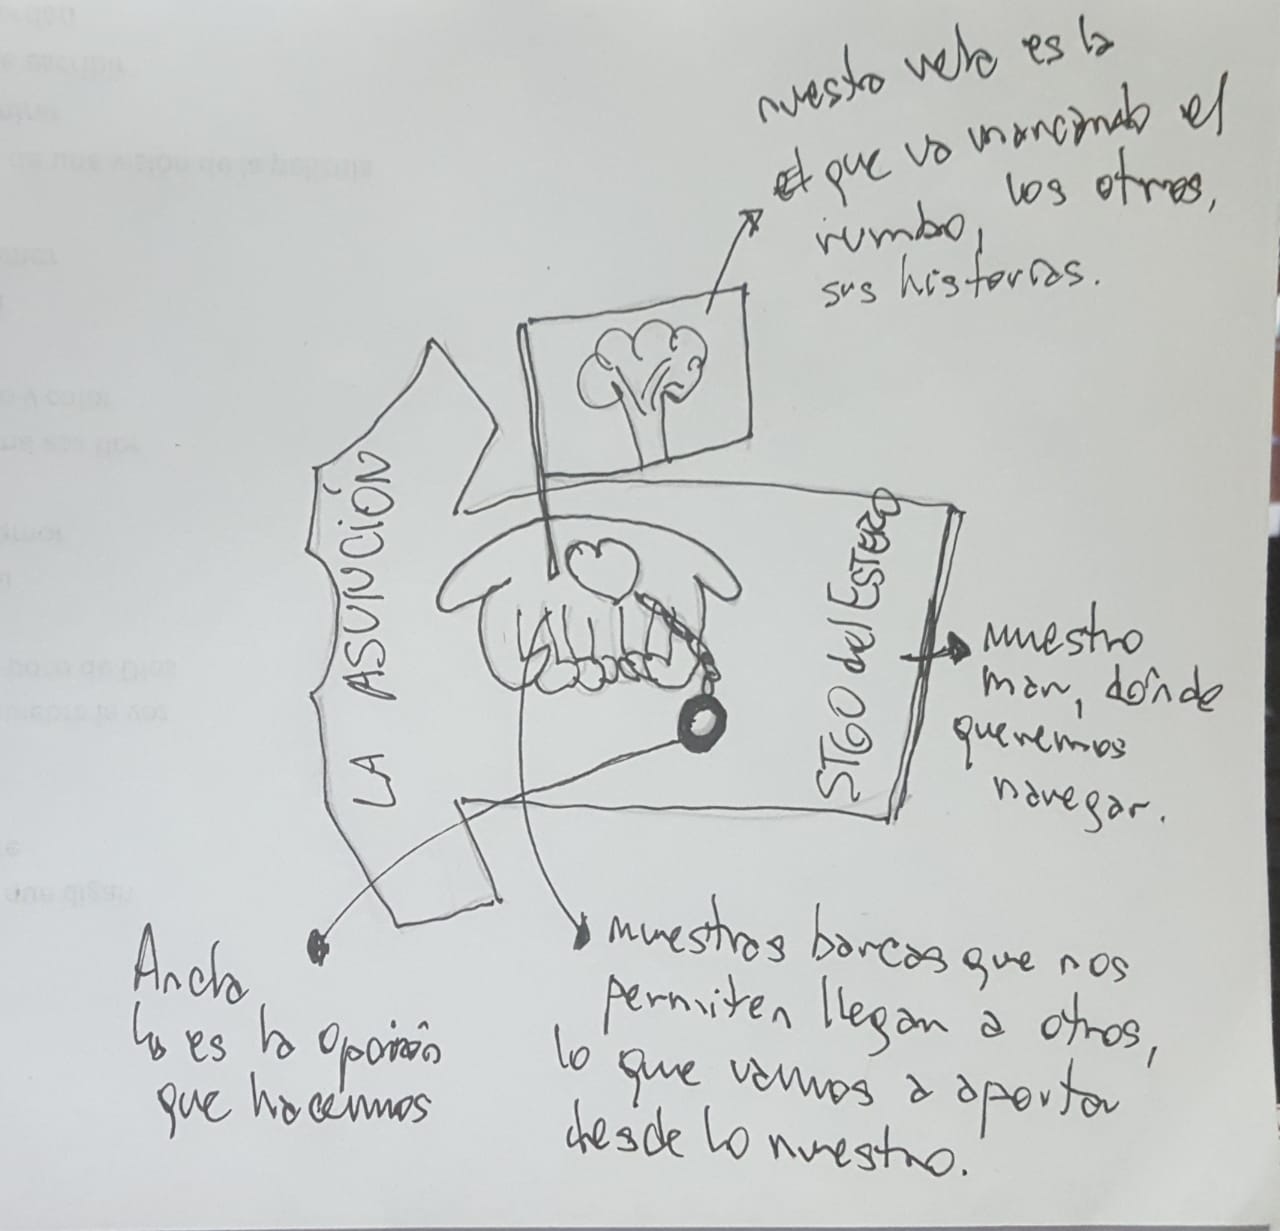 nuestra vela es la
el que va marcando el
rumbo, los otros,
sus historias.
LA ASUNCIÓN
STGO del ESTERO
nuestro
mar, dónde
queremos
navegar.
Ancla
es la opción
que hacemos
nuestras barcas que nos
permiten llegar a otros,
lo que vamos a aportar
desde lo nuestro.